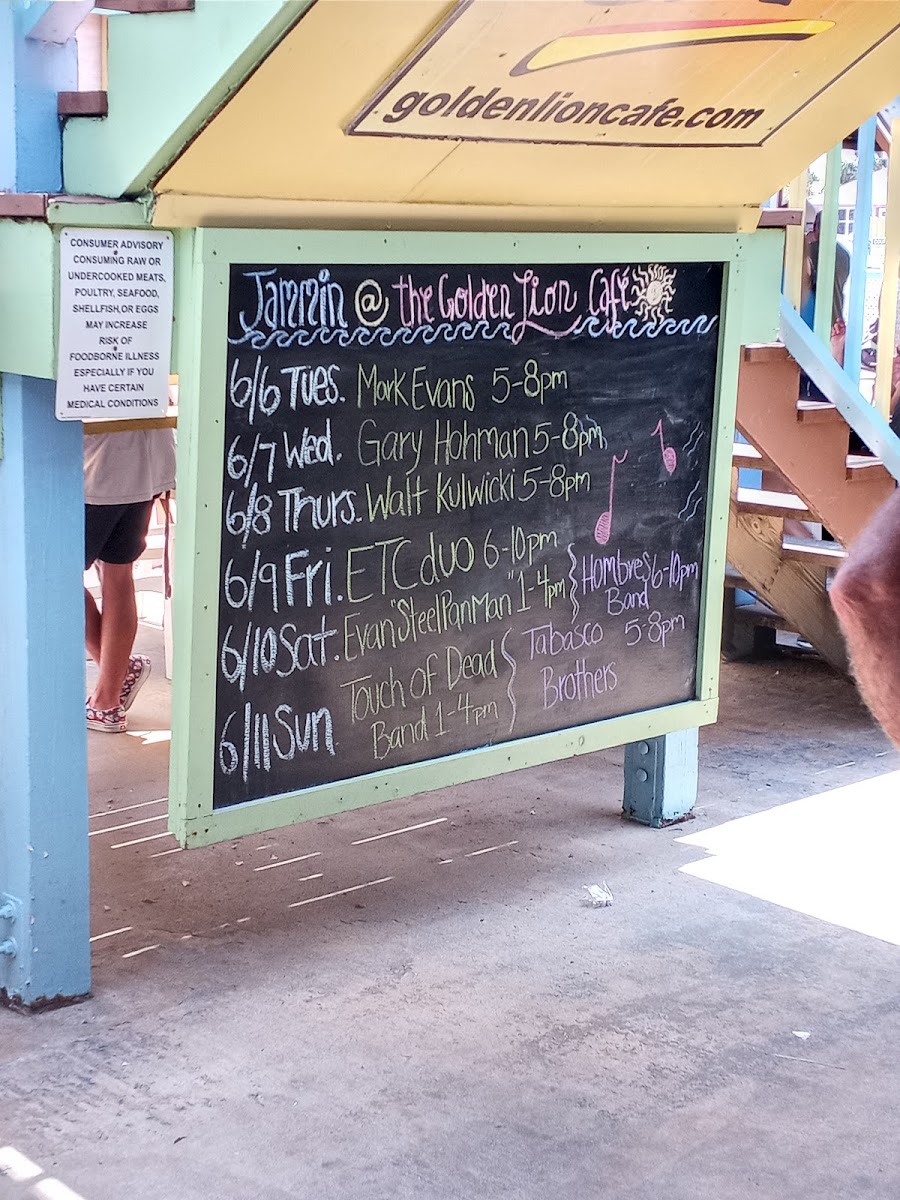 goldenlioncafe.com
CONSUMER ADVISORY
CONSUMING RAW OR
UNDERCOOKED MEATS,
POULTRY, SEAFOOD,
SHELLFISH,OR EGGS
MAY INCREASE
RISK OF
FOODBORNE ILLNESS
ESPECIALLY IF YOU
HAVE CERTAIN
MEDICAL CONDITIONS
Jammin @ the Golden Lion Café
6/6 Tues. Mark Evans 5-8pm
6/7 Wed. Gary Hohman 5-8pm
6/8 Thurs. Walt Kulwicki 5-8pm
6/9 Fri. ETC duo 6-10pm
6/10 Sat. Evan "Steel Pan Man" 1-4pm Hombres 6-10pm
Band
6/11 Sun Touch Of Dead Tabasco 5-8pm
Band 1-4pm Brothers